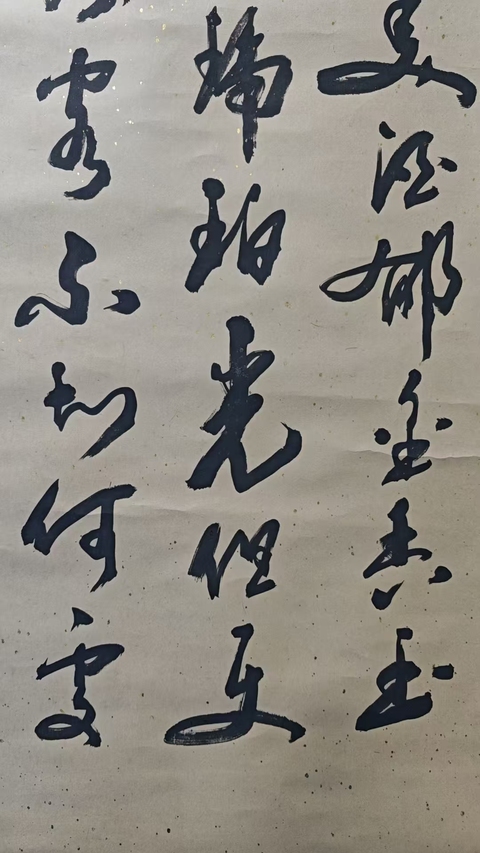 美酒郁金香玉
琥珀光但使
客不知何處